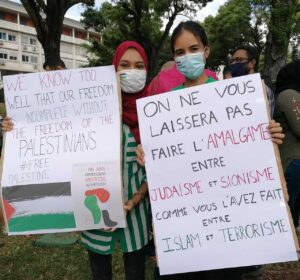 WE KNOW TOO
WELL THAT OUR FREEDOM
IS INCOMPLETE WITHOUT
THE FREEDOM OF THE
PALESTINIANS
#FREE
PALESTINE
ON NE VOUS
LAISSERA PAS
FAIRE L'AMALGAME
ENTRE
JUDAISME ET SIONISME
COMME VOUS L'AVEZ FAIT
ENTRE
ISLAM ET TERRORISME